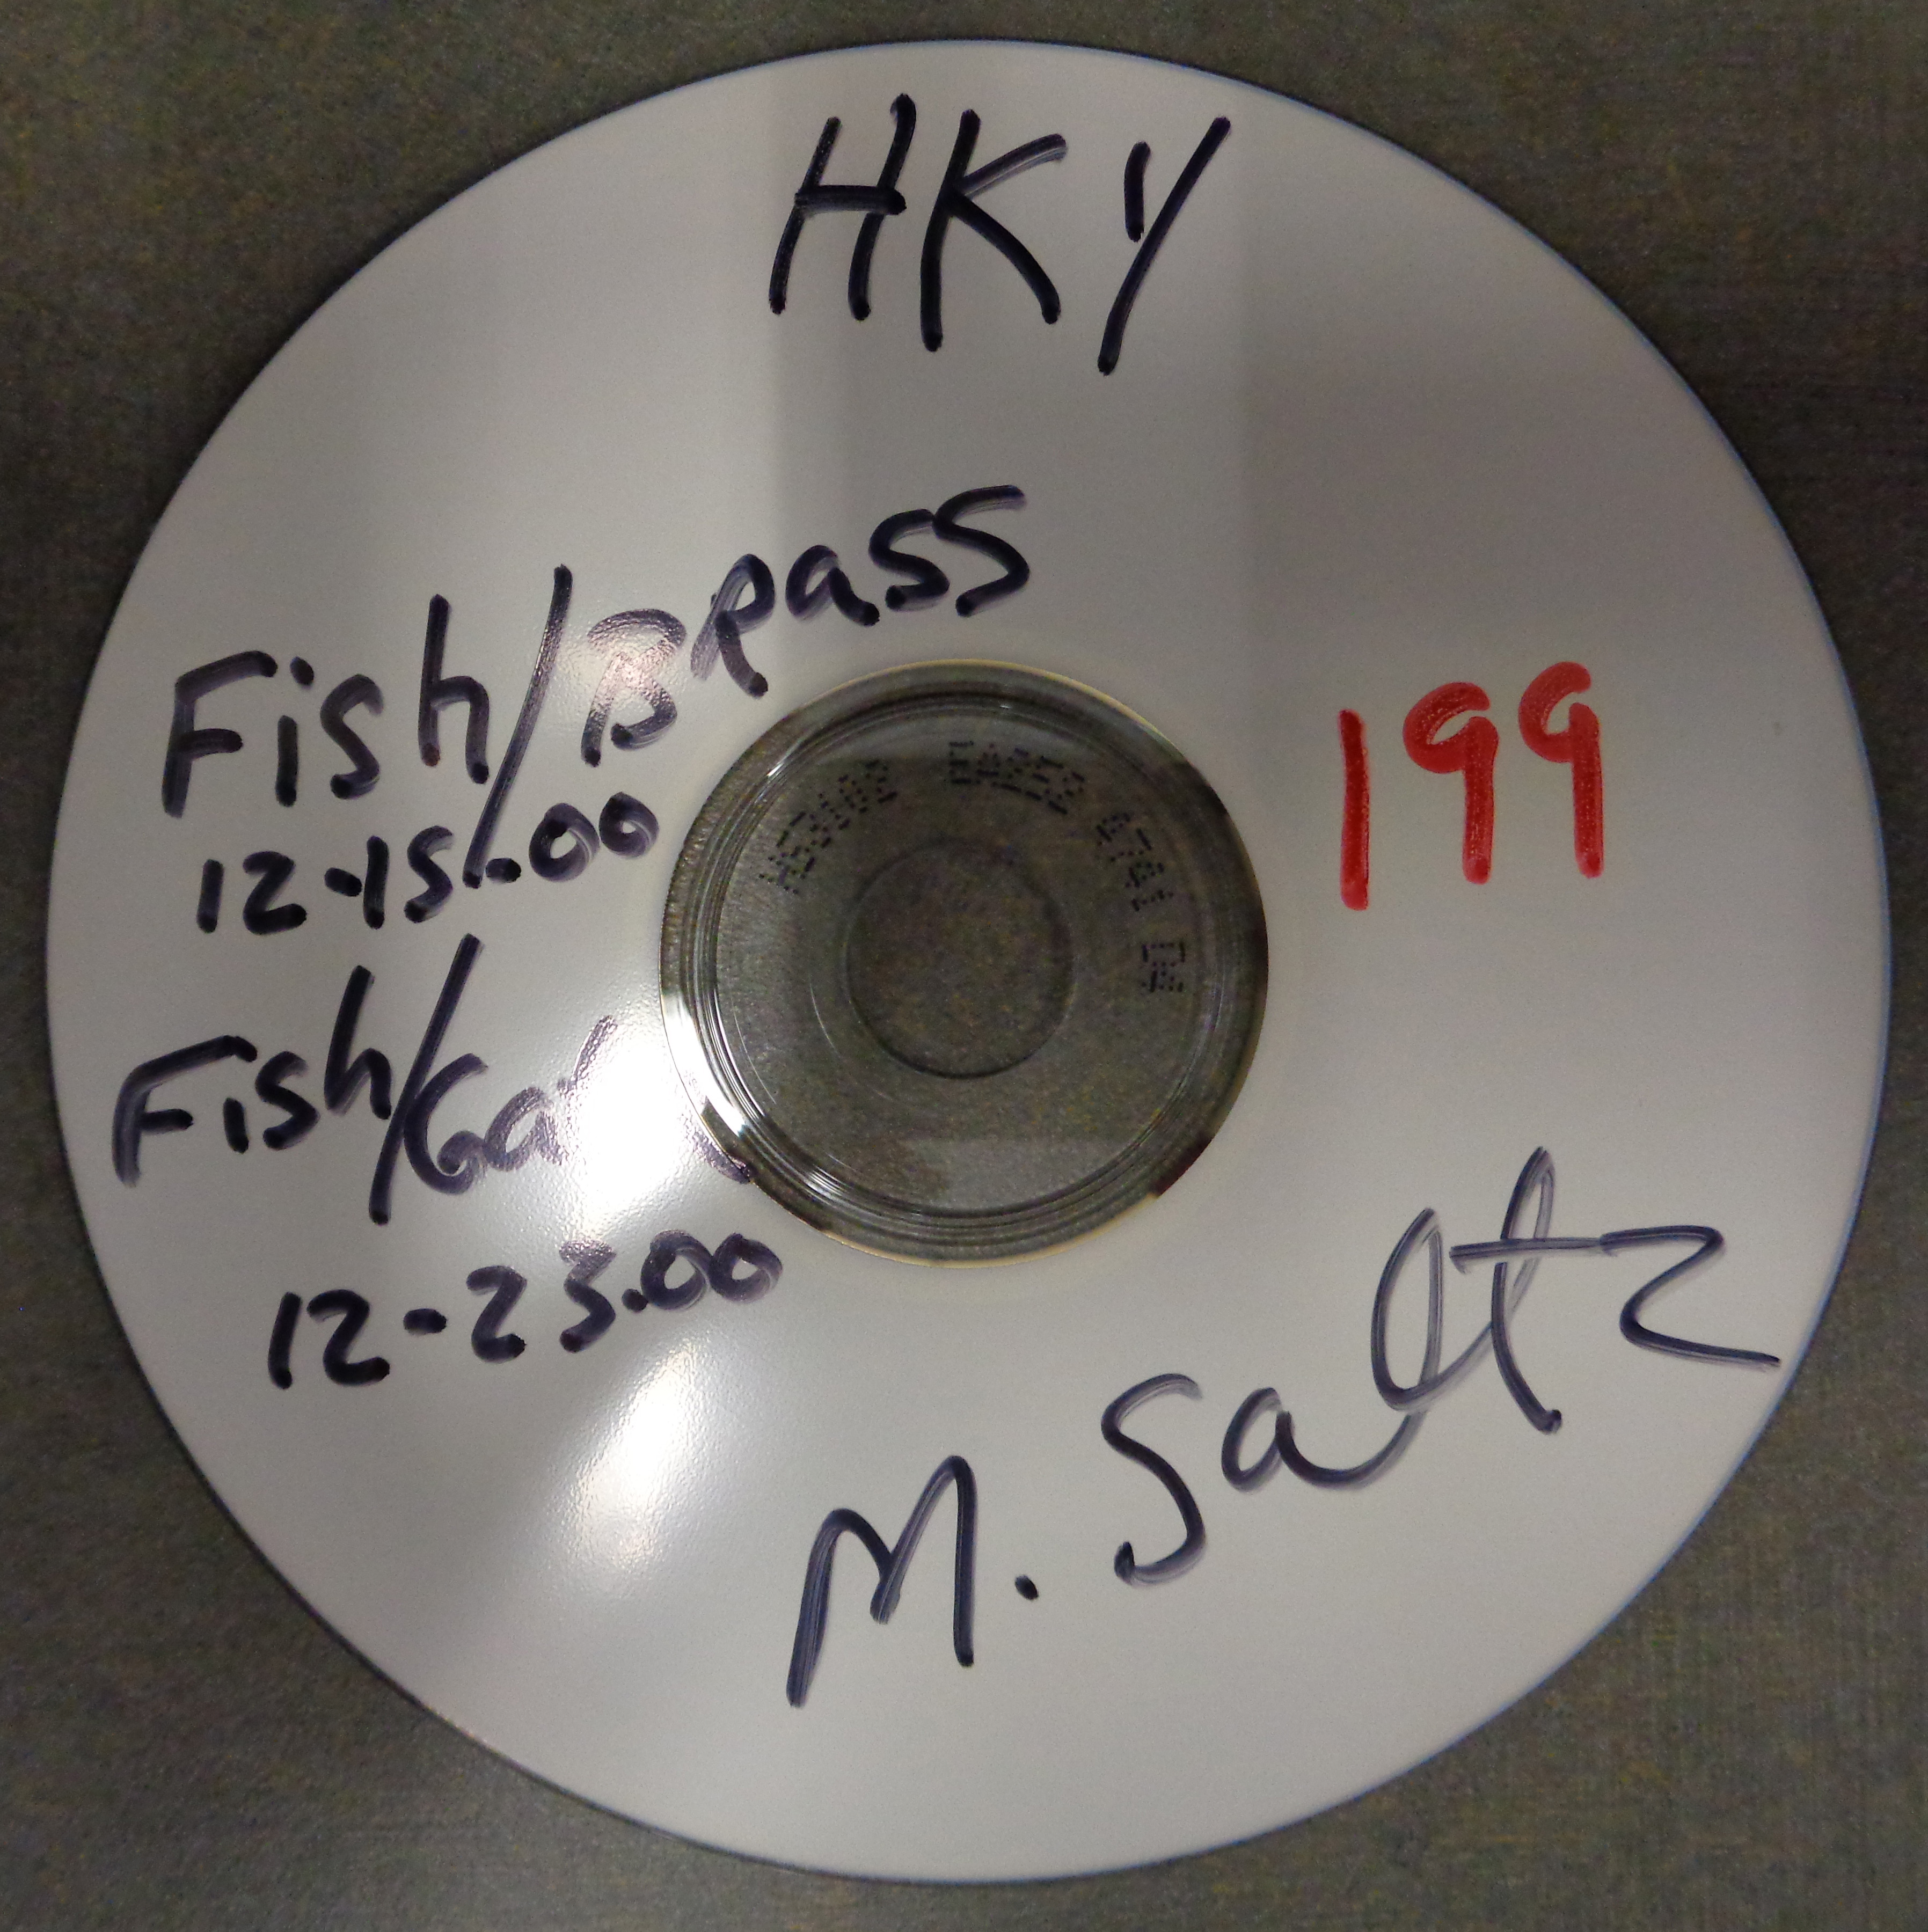 HKY
Fish/Bpass
12-15-00
199
Fish/
12-23.00
M. Saltz